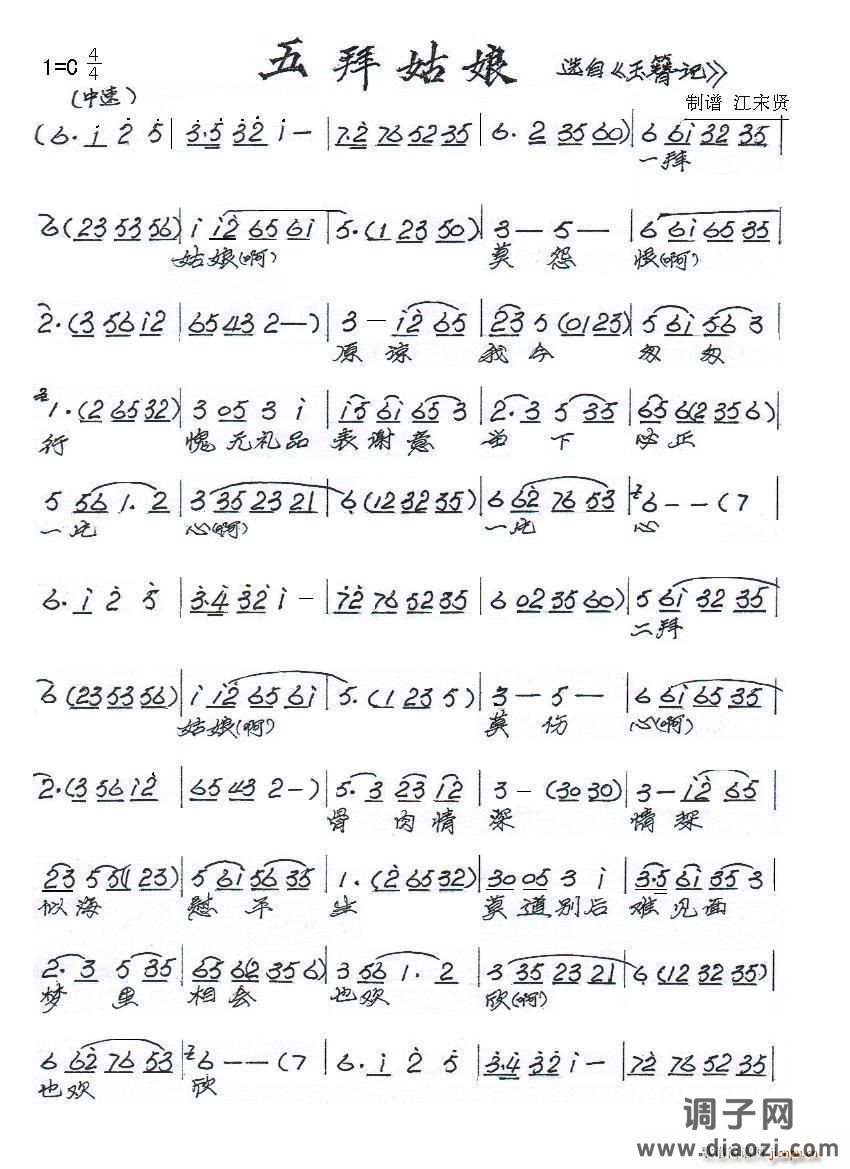 1=C 4/4 五拜姑娘 选自《玉簪记》
(中速)
制谱 江宋贤
(6. i 2 5 | 3.5 32 i — | 7.2 76 52 35 | 6. 2 35 60) | 6 6i 32 35 |
一拜
6 (23 53 56) | i i2 65 6i | 5. (1 23 50) | 3 — 5 — | 6 6i 65 35 |
姑娘(啊) 莫 怨 恨(啊)
2. (3 56 i2 | 65 43 2 —) | 3 — i2 65 | 23 5 (01 23) | 5 6i 56 3 |
原 谅 我 今 匆 匆
1. (2 65 32) | 3 05 3 i | i5 6i 65 3 | 2. 3 5 35 | 65 6(2 35 6) |
行 愧 无 礼 品 表 谢 意 当 下 必 正
5 56 1. 2 | 3 35 23 21 | 6 (12 32 35) | 6 62 76 53 | 6 — — (7
一片 心(啊) 一片 心
6. i 2 5 | 3.4 32 i — | 72 76 52 35 | 6 02 35 60) | 5 6i 32 35 |
二拜
6 (23 53 56) | i i2 65 6i | 5. (1 23 5) | 3 — 5 — | 6 6i 65 35 |
姑娘(啊) 莫 伤 心(啊)
2. (3 56 i2 | 65 43 2 —) | 5. 3 23 i2 | 3 — (30 30) | 3 — i2 65 |
骨 肉 情 深 情 深
23 5 5(1 23) | 5 6i 56 35 | 1. (2 65 32) | 30 05 3 i | 3.5 6i 35 3 |
似 海 慰 平 生 莫 道 别 后 难 见 面
2. 3 5 35 | 65 6(2 35 6) | 3 56 1. 2 | 3 35 23 21 | 6 (12 32 35) |
梦 里 相 会 也 欢 欣(啊)
6 62 76 53 | 6 — — (7 | 6. i 2 5 | 3.4 32 i — | 72 76 52 35 |
也 欢 欣
调子网
www.diaozi.com